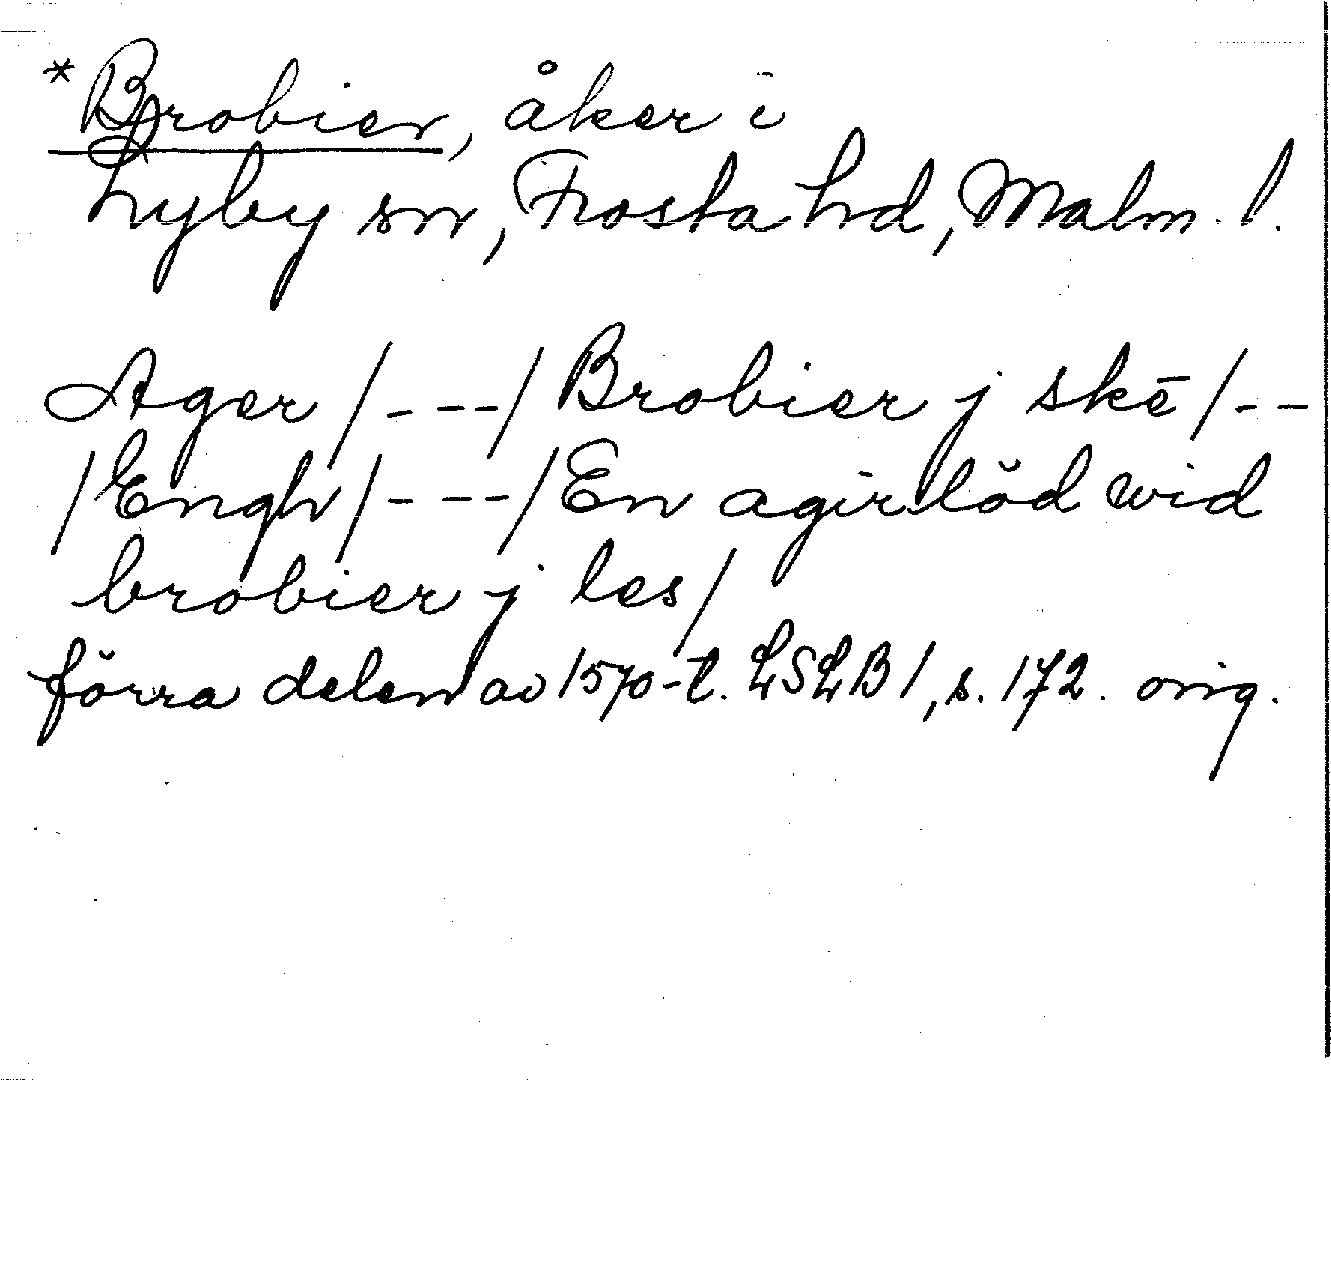 *Brobier, åker i
Lyby sn, Frosta hd, Malm. l.
Ager /- ---/ Brobier j skē /- --
/Engh/- ---/ En agirlöd wid
brobier j les/
förra delen av 1570-t. LSLB 1, s. 172. orig.